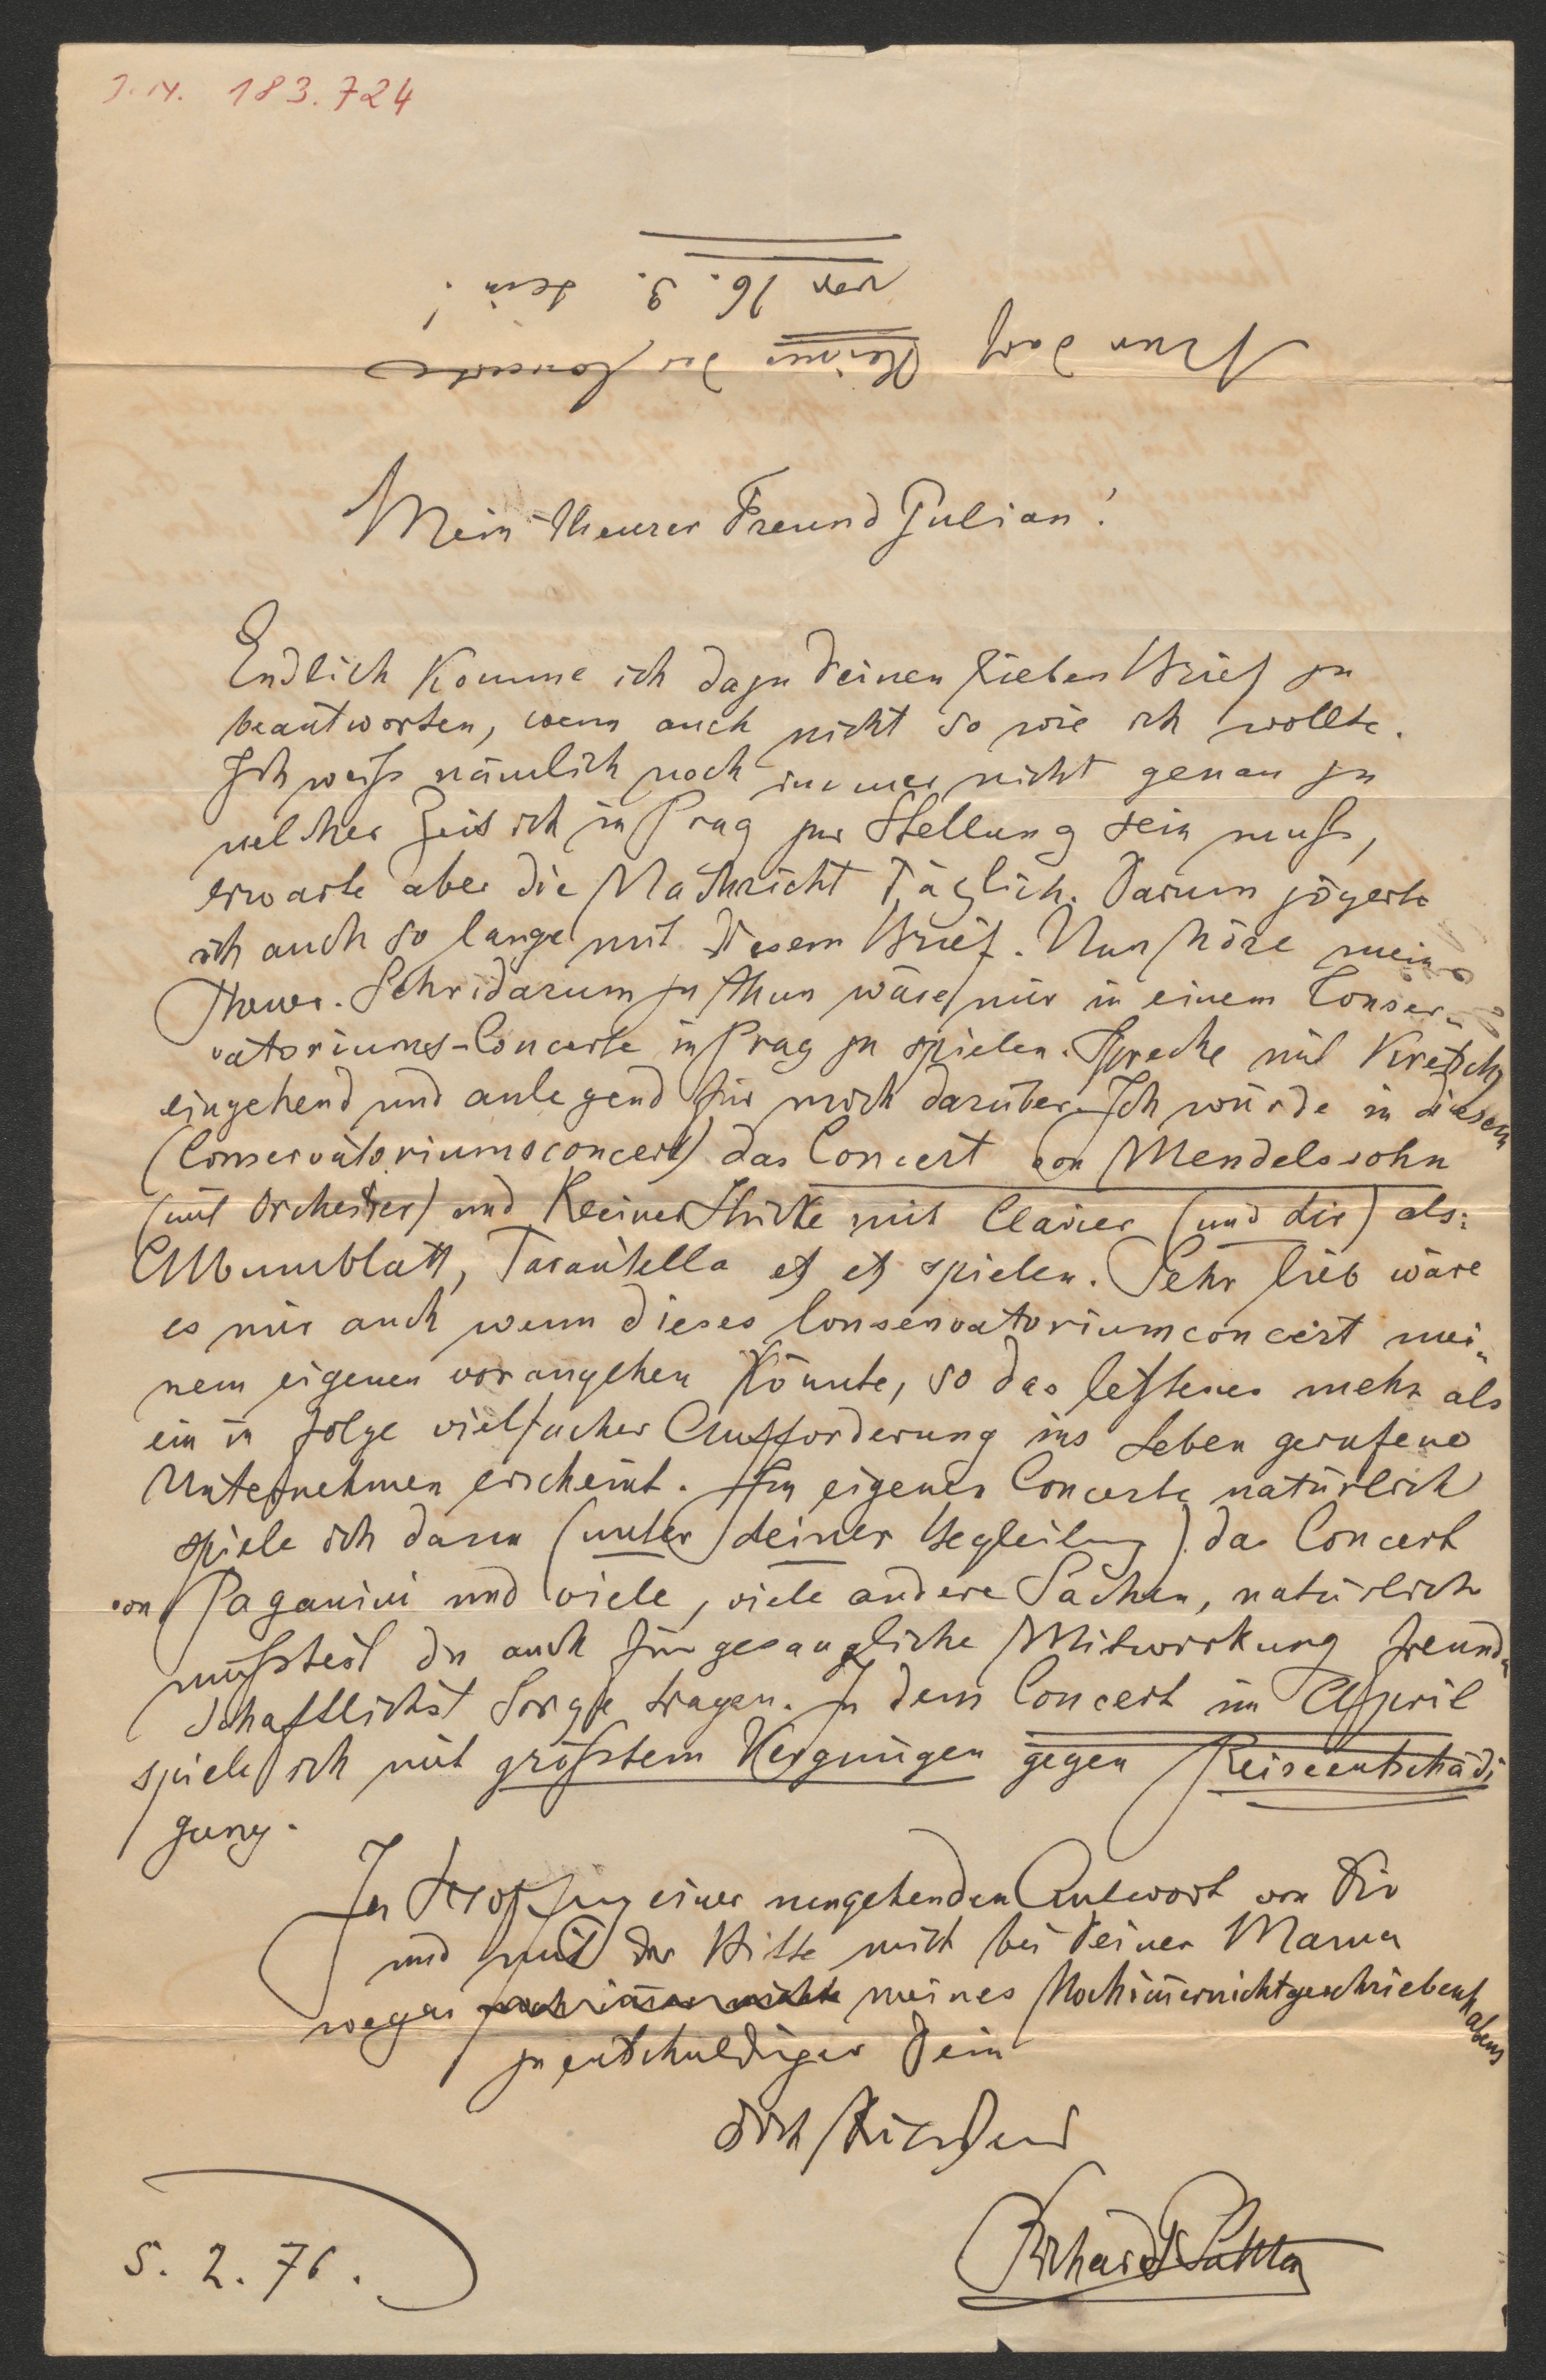 J. N. 183.724
Nur darf keines der Concerte
vor 16. 3. sein!
Mein theurer Freund Julian!
Endlich komme ich dazu Deinen lieben Brief zu
beantworten, wenn auch nicht so wie ich wollte.
Ich weiß nämlich noch immer nicht genau zu
welcher Zeit ich in Prag zur Stellung sein muß,
erwarte aber die Nachricht täglich. Darum zögerte
ich auch so lange mit diesem Brief. Nun höre mein
Theurer. Sehr darum zu thun wäre mir in einem Conser-
vatoriums-Concerte in Prag zu spielen. Spreche mit Kretsch
eingehend und anlegend für mich darüber. Ich würde in diesem
(Conservatoriumsconcert) das Concert von Mendelssohn
(mit Orchester) und kleinere Stücke mit Clavier (und dir) als:
Albumblatt, Tarantella et et spielen. Sehr lieb wäre
es mir auch wenn dieses Conservatoriumconcert mei-
nem eigenen vorangehen könnte, so das letzteres mehr als
ein in folge vielfacher Aufforderung ins Leben gerufene
Unternehmen erscheint. Im eigenen Concerte natürlich
spiele ich dann (unter deiner Begleitung) das Concert
von Paganini und viele, viele andere Sachen, natürlich
müßtest du auch für gesangliche Mitwirkung freund-
schaftlichst Sorge tragen. In dem Concert im April
spiele ich mit größtem Vergnügen gegen Reiseentschädi
gung.
In Hoffnung einer umgehenden Antwort von Dir
und mit der Bitte mich bei Deiner Mama
wegen noch immer nicht meines Nochimernichtgeschriebenhabens
zu entschuldigen Dein
Dich
Richard Sahla
5. 2. 76.